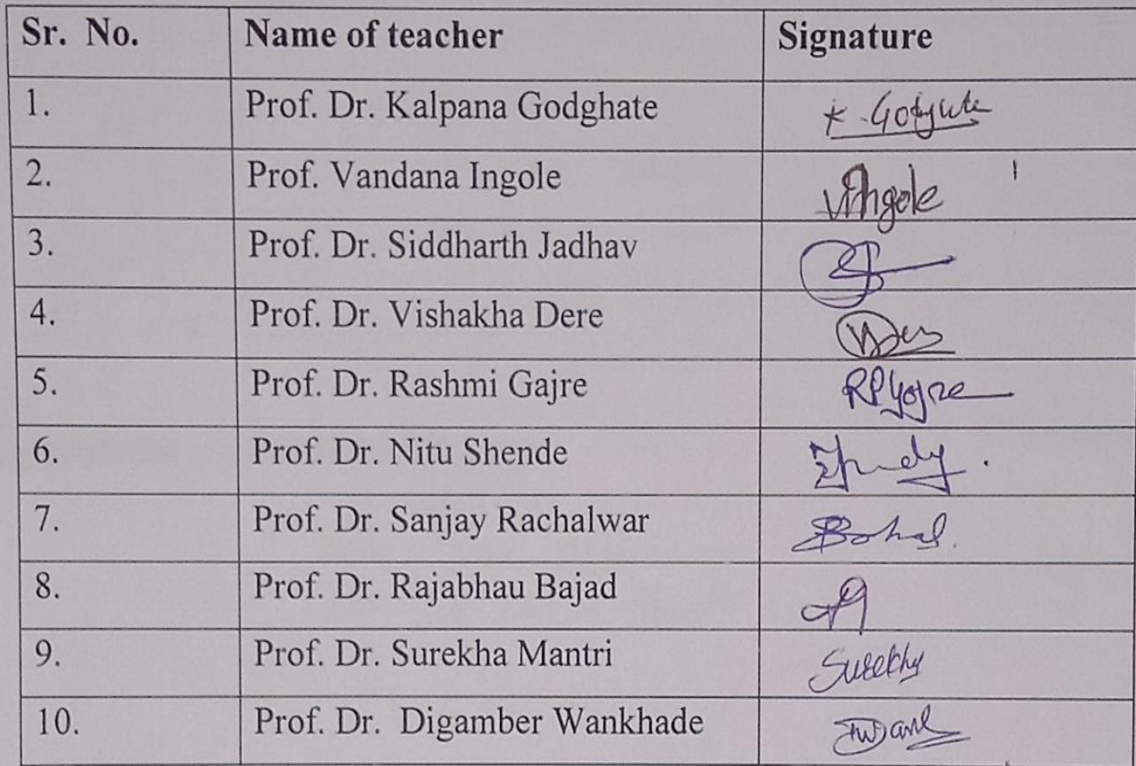 Sr. No. Name of teacher Signature
1. Prof. Dr. Kalpana Godghate K. Godghate
2. Prof. Vandana Ingole VIngole
3. Prof. Dr. Siddharth Jadhav
4. Prof. Dr. Vishakha Dere
5. Prof. Dr. Rashmi Gajre RPGajre
6. Prof. Dr. Nitu Shende
7. Prof. Dr. Sanjay Rachalwar
8. Prof. Dr. Rajabhau Bajad
9. Prof. Dr. Surekha Mantri Surekha
10. Prof. Dr. Digamber Wankhade